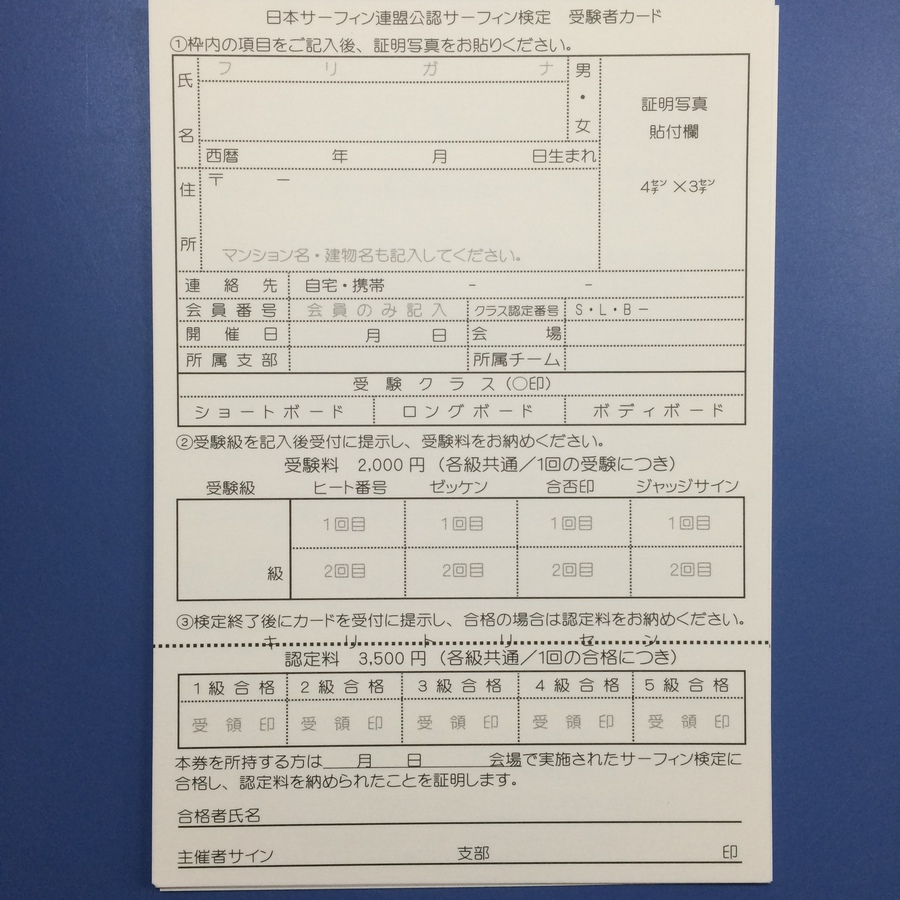 日本サーフィン連盟公認サーフィン検定　受験者カード
①枠内の項目をご記入後、証明写真をお貼りください。
氏名
フリガナ
男・女
証明写真
貼付欄
4㌢×3㌢
西暦　年　月　日生まれ
住所
〒　－
マンション名・建物名も記入してください。
連絡先　自宅・携帯　-　-
会員番号　会員のみ記入　クラス認定番号　S・L・B－
開催日　月　日　会場
所属支部　所属チーム
受験クラス（○印）
ショートボード　ロングボード　ボディボード
②受験級を記入後受付に提示し、受験料をお納めください。
受験料　2,000円（各級共通／1回の受験につき）
受験級　ヒート番号　ゼッケン　合否印　ジャッジサイン
1回目　1回目　1回目　1回目
級　2回目　2回目　2回目　2回目
③検定終了後にカードを受付に提示し、合格の場合は認定料をお納めください。
キリトリセン
認定料　3,500円（各級共通／1回の合格につき）
1級合格　2級合格　3級合格　4級合格　5級合格
受領印　受領印　受領印　受領印　受領印
本券を所持する方は　月　日　会場で実施されたサーフィン検定に
合格し、認定料を納められたことを証明します。
合格者氏名
主催者サイン　支部　印